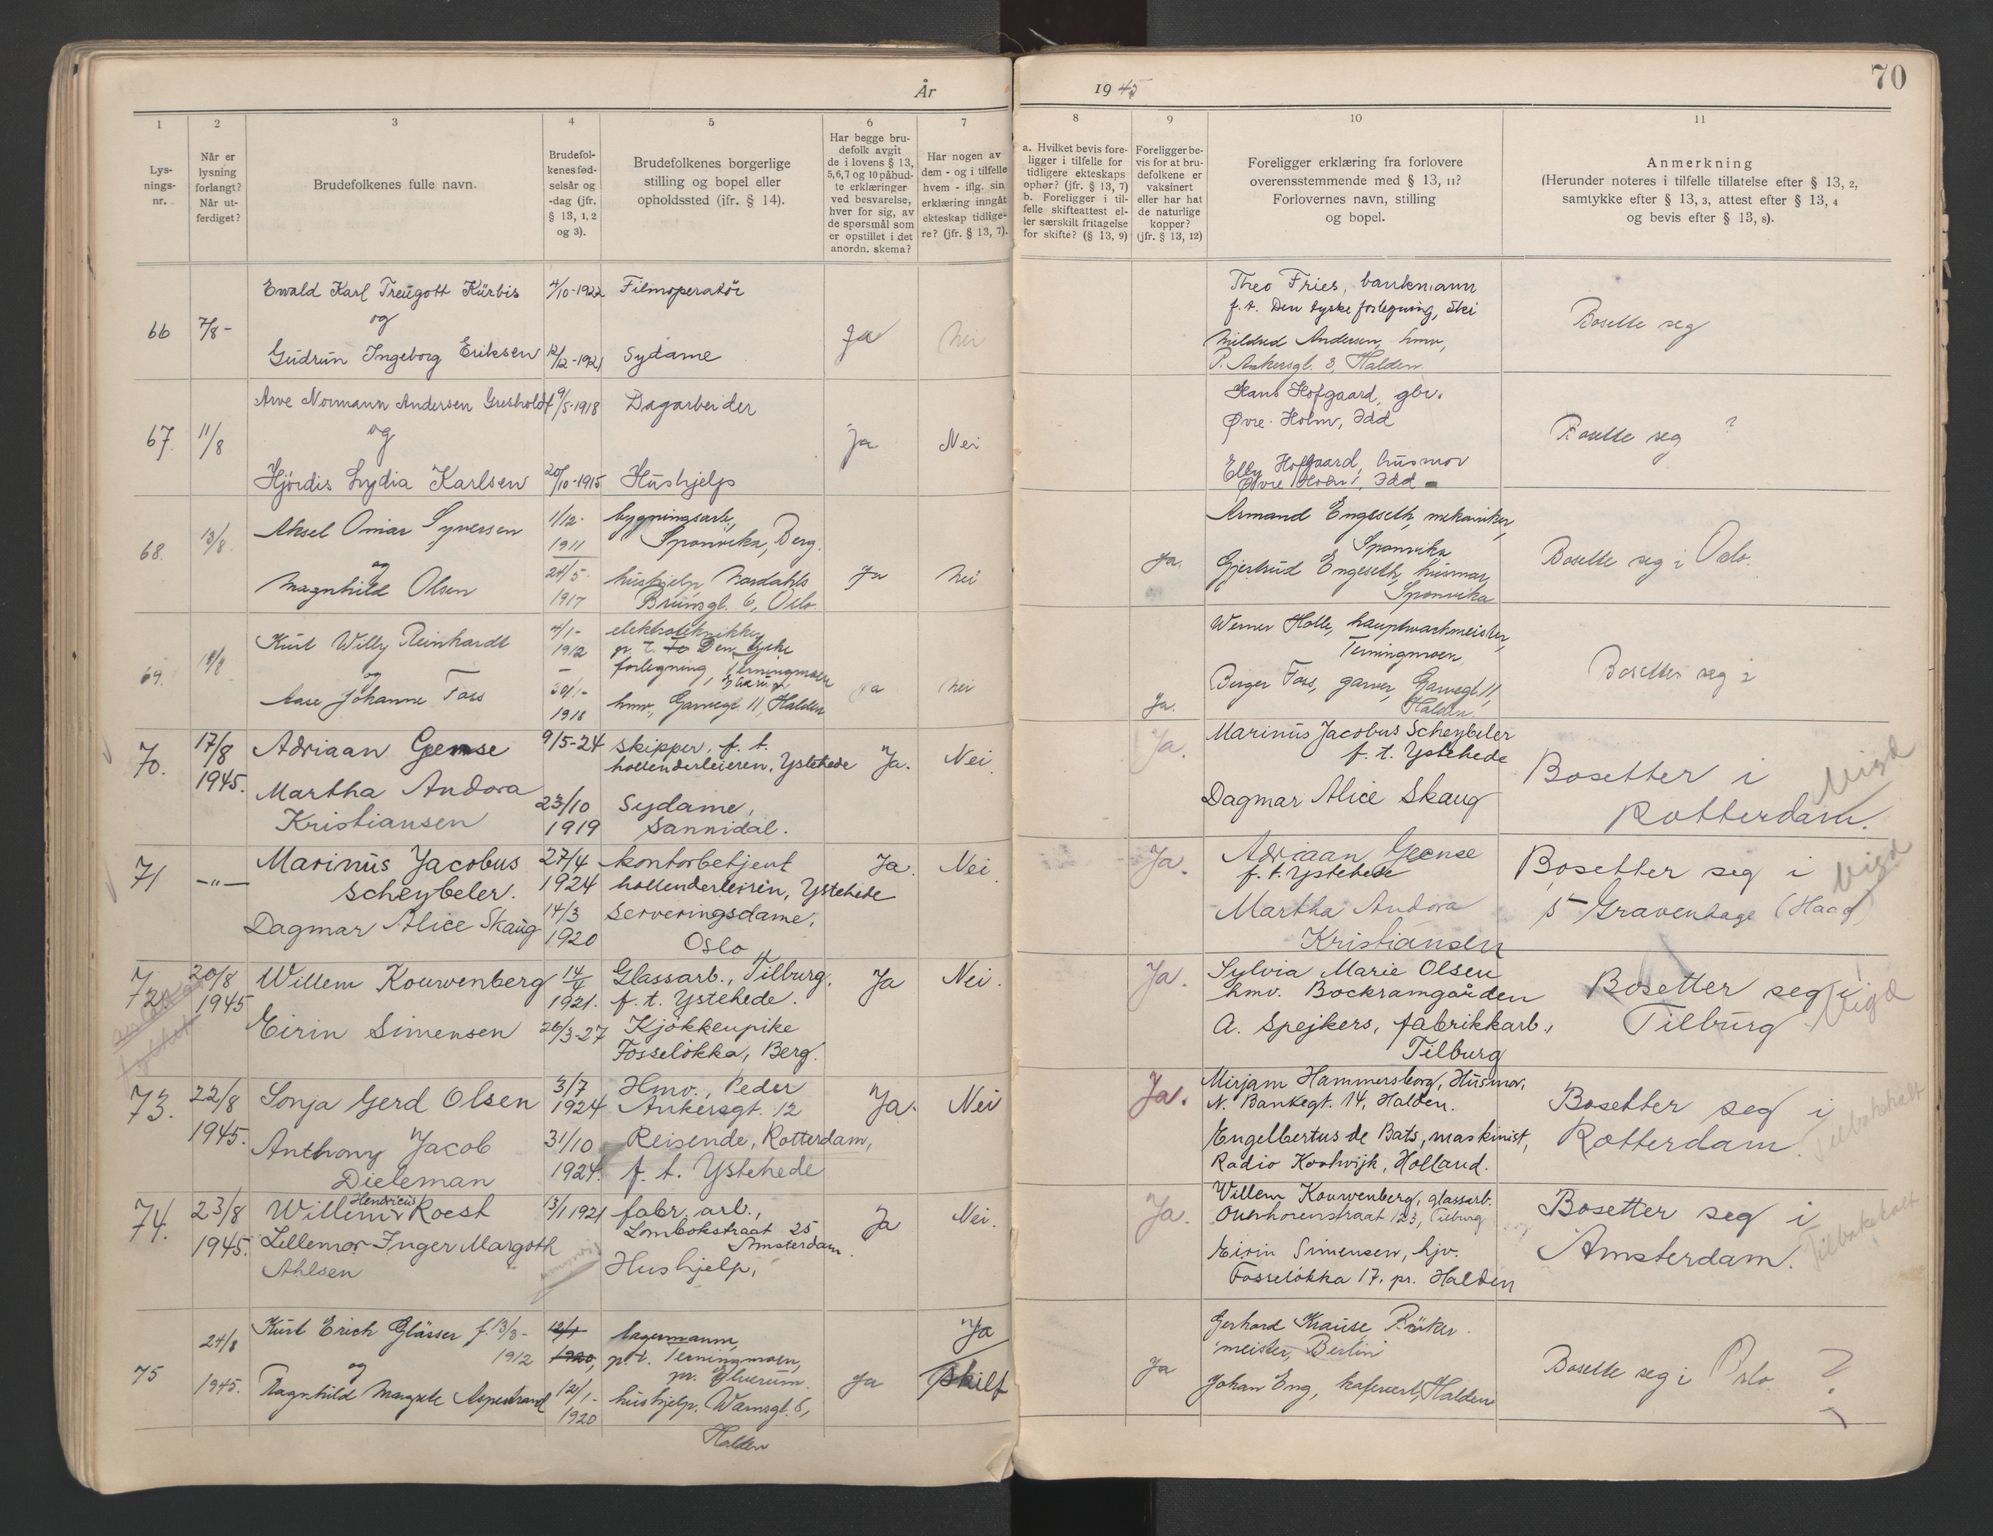 År
1945
70
1
2
3
4
5
6
7
8
9
10
11
Lys-
nings-
nr.
Når er
lysning
forlangt?
Når ut-
ferdiget?
Brudefolkenes fulle navn.
Brudefol-
kenes fød-
selsår og
-dag (jfr.
§ 13, 1, 2
og 3).
Brudefolkenes borgerlige
stilling og bopel eller
opholdssted (ifr. § 14).
Har begge bru-
defolk avgit
de i lovens § 13,
5, 6, 7 og 10 påbud-
te erklæringer
ved besvarelse,
hver for sig, av
de spørsmål som
er opstillet i det
anordn. skema?
Har nogen av
dem - og i tilfelle
hvem - iflg. sin
erklæring inngått
ekteskap tidlige-
re? (jfr. § 13, 7).
a. Hvilket bevis fore-
ligger i tilfelle for
tidligere ekteskaps
ophør? (jfr. § 13, 7)
b. Foreligger i til-
felle skifteattest el-
ler særskilt fritagelse
for skifte? (§ 13, 9)
Foreligger be-
vis for at bru-
defolkene er
vaksinert
eller har hat
de naturlige
kopper?
(jfr. § 13, 12)
Foreligger erklæring fra forlovere
overensstemmende med § 13, 11?
Forlovernes navn, stilling
og bopel.
Anmerkning
(Herunder noteres i tilfelle tillatelse efter § 13, 2,
samtykke efter § 13, 3, attest efter § 13, 4
og bevis efter § 13, 8).
66
7/8-
Ewald Karl Treugott Kürbis
og
Gudrun Ingeborg Eriksen
4/10-1922
12/12-1921
Filmoperatör
Sydame
Ja
Nei
Theo Fries, bankmann
f.t. Den tyske forlegning, Ski
Mildred Andersen, hmv,
P. Ankersgt. 3, Halden
Bosette seg
67.
11/8
Arve Normann Andersen Gresholdt
og
Hjördis Lydia Karlsen
9/5-1918
20/10-1915
Dagarbeider
Hushjelp
Ja
Nei
Hans Hofgaard, gbr.
Øvre Holm, Idd
Elly Hofgaard, husmor
Øvre Holm, Idd
Bosette seg ?
68.
13/8.
Aksel Omar Syversen
og
Magnhild Olsen
1/12-
1911
24/5-
1917
bygningsarb,
Sponvika, Berg.
hushjelp, Nordahls
Brunsgt. 6, Oslo
Ja
Nei
Ja.
Armand Engeseth, mekaniker,
Sponvika
Gjertrud Engeseth, husmor,
Sponvika
Bosette seg i Oslo.
69.
Kurt Willy Reinhardt
og
Aase Johanne Foss
4/1-
1912
30/1-
1918
elektrotekniker
p. t. Den tyske
forlegning, Terningmoen
Elverum
hmv., Garvegt. 11, Halden
Ja
Nei
Ja.
Werner Holle, hauptwachmeister,
Terningmoen
Birger Foss, garver, Garvegt. 11
Halden.
Bosetter seg i
70.
17/8
1945.
Adriaan Geense
Martha Andora
Kristiansen
9/5-24
23/10
1919
skipper, f. t.
hollenderleieren, Ystehede
Sydame,
Sannidal.
Ja.
Nei
Ja.
Marinus Jacobus Scheybeler
f. t. Ystehede
Dagmar Alice Skaug
Bosetter i
Rotterdam.
Vigd
71
—"—
Marinus Jacobus
Scheybeler.
Dagmar Alice Skaug
27/4
1924
14/3
1920
kontorbetjent
hollenderleiren, Ystehede
Serveringsdame,
Oslo
Ja.
Nei.
Ja.
Adriaan Geense
f. t. Ystehede
Martha Andora
Kristiansen
Bosetter seg i
s Gravenhage (Haag)
Vigd
72
20/8
1945
Willem Kouwenberg
Eirin Simensen
14/4
1921.
26/3-27
Glassarb., Tilburg.
f. t. Ystehede.
Kjökkenpike
Fosselökka, Berg.
Ja
Nei.
Ja.
Sylvia Marie Olsen
hmv. Bockramgården
A. Spejkers, fabrikkarb.,
Tilburg
Bosetter seg i
Tilburg
Vigd
73.
22/8
1945.
Sonja Gerd Olsen
Anthony Jacob
Dieleman
3/7
1924
31/10
1924.
Hmv., Peder
Ankersgt. 12
Reisende, Rotterdam,
f. t. Ystehede
Ja.
Nei
Ja.
Mirjam Hammersborg, Husmor,
N. Bankegt. 14, Halden.
Engelbertus de Bats, maskinist,
Radio Kootwijk, Holland.
Bosetter seg i
Rotterdam.
Tilbakekalt
74.
23/8
1945.
Willem Hendricus Roest
Lillemor Inger Margoth
Ahlsen
13/1 1921
fabr. arb.,
Lombokstraat 25
Amsterdam.
Hushjelp,
Ja
Nei.
Ja.
Willem Kouwenberg, glassarb.
123, Tilburg
Eirin Simensen, hjv.
Fosselökka 17. pr. Halden
Bosetter seg i
Amsterdam.
Tilbakekalt
75
24/8
1945.
Kurt Erich Glässer f. 13/3-
1912
og
Ragnhild Margrete Aspestrand
12/1
1920,
12/1-
1920
lagermann,
p.t. Terningmoen,
pr. Elverum.
hushjelp, Warnsgt. 8,
Halden
Ja
Ja
skilt
Ja
Gerhard Krause,
meister, Berlin
Johan Eng, kafevert, Halden
Bosette seg i Oslo ?